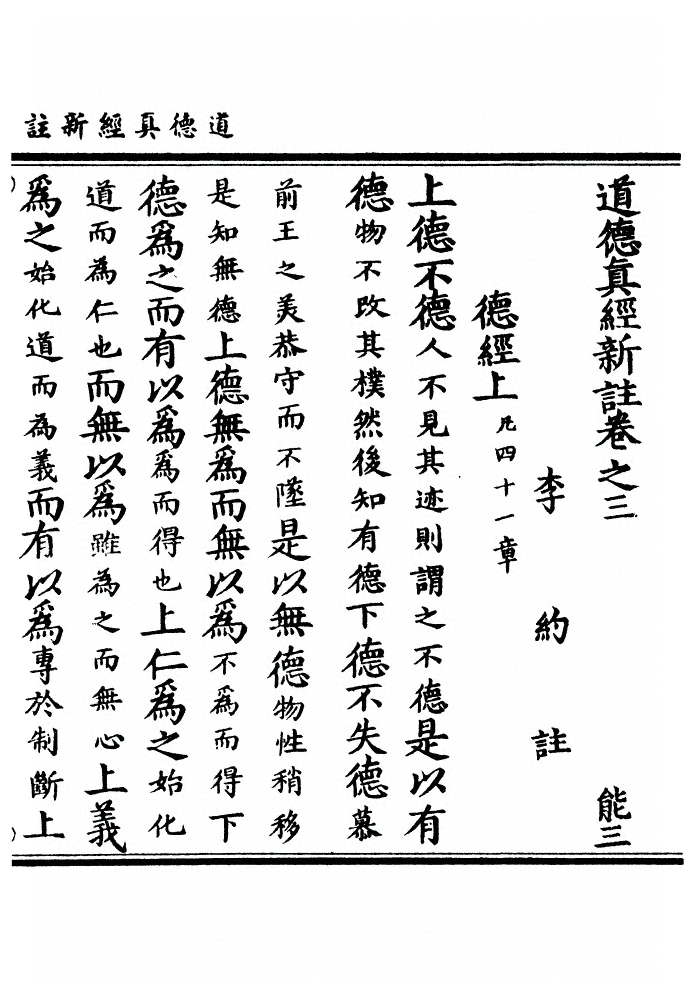 道德真經新註
道德眞經新註卷之三 能三
李約註
德經上 凡四十一章
上德不德人不見其迹則謂之不德是以有
德物不改其樸然後知有德下德不失德慕
前王之美恭守而不墜是以無德物性稍移
是知無德上德無爲而無以爲不爲而得下
德爲之而有以爲爲而得也上仁爲之始化
道而為仁也而無以爲雖為之而無心上義
爲之始化道而為義而有以爲專於制斷上